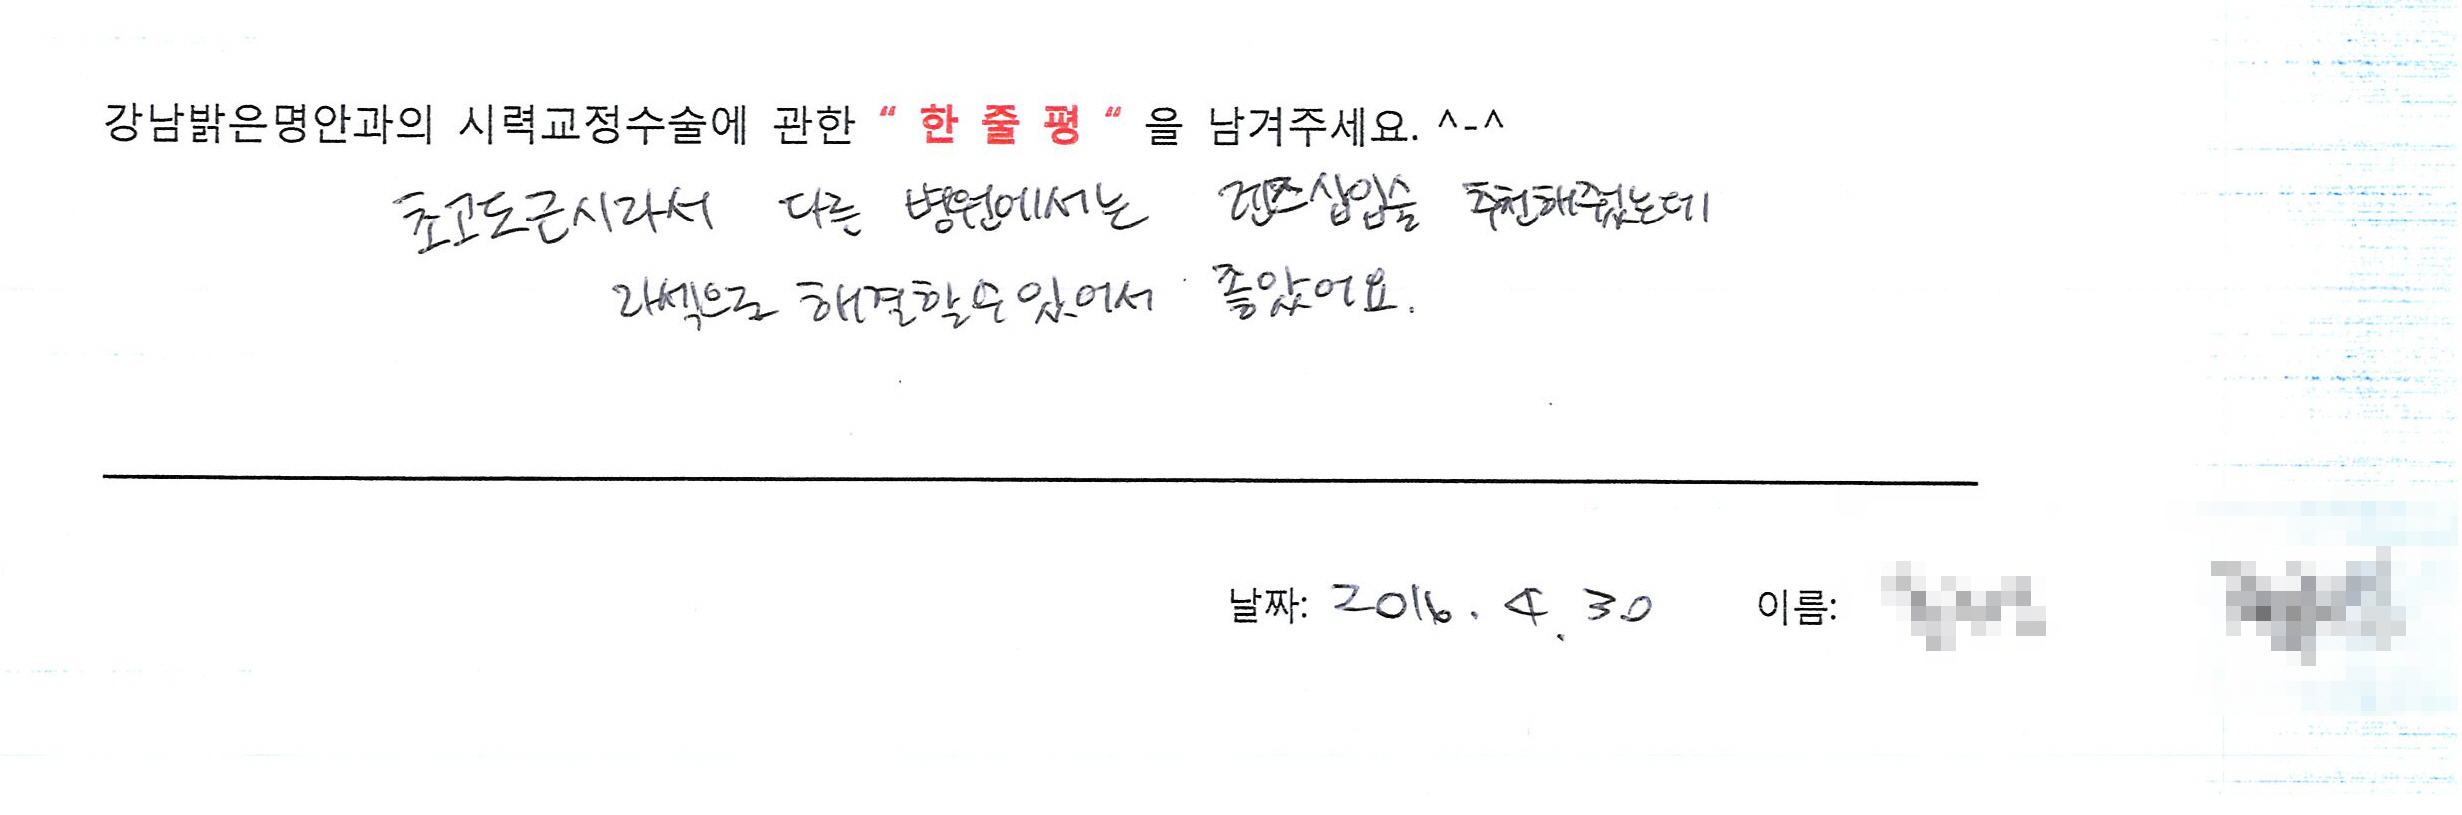 강남밝은명안과의 시력교정수술에 관한 “ 한 줄 평 “ 을 남겨주세요. ^-^
초고도근시라서 다른 병원에서는 렌즈삽입술 추천해줬는데
라섹으로 해결할수있어서 좋았어요.
날짜: 2016. 4. 30 이름: